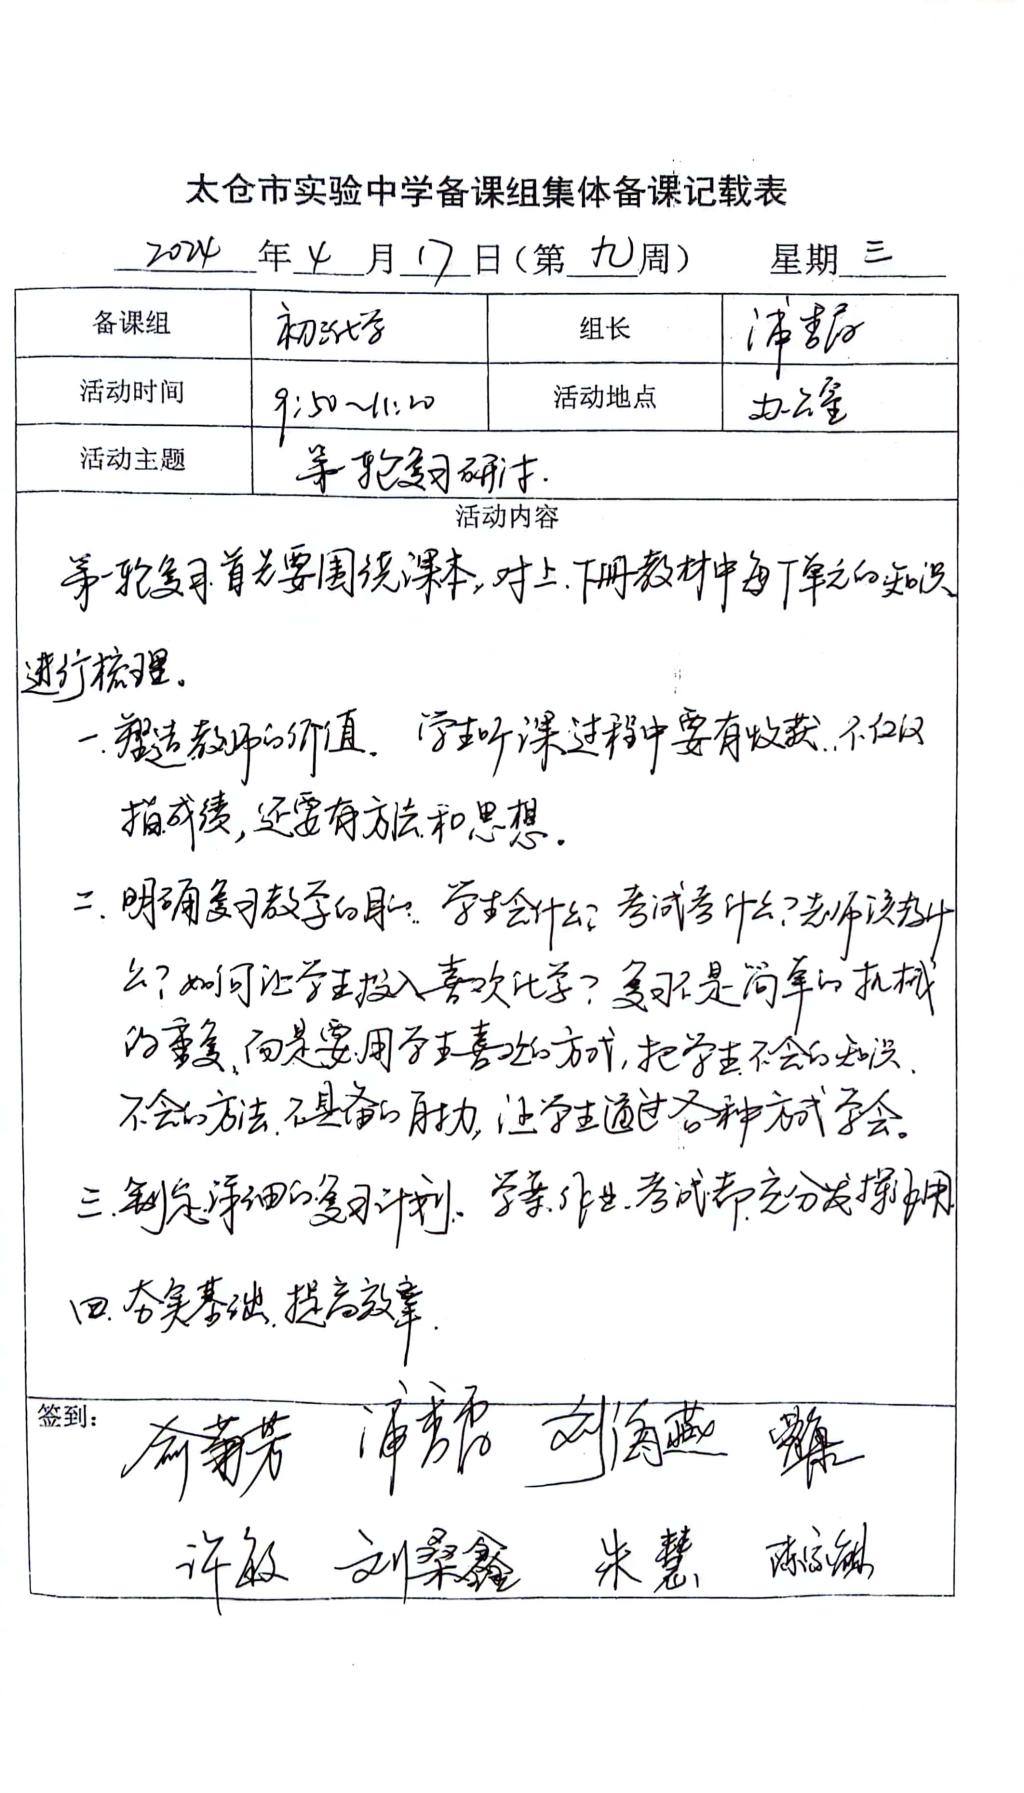 太仓市实验中学备课组集体备课记载表
2024 年 4 月 17 日（第 九 周） 星期 三
备课组 初三化学 组长 浦
活动时间 9:50~11:20 活动地点 办公室
活动主题 第一轮复习研讨.
活动内容
第一轮复习首先要围绕课本,对上.下册教材中每个单元的知识
进行梳理。
一.塑造教师的价值. 学生听课过程中要有收获.不仅仅
指成绩,还要有方法和思想。
二.明确复习教学的目的. 学生会什么?考试考什么?老师该教什
么?如何让学生投入喜欢化学?复习不是简单的机械
的重复,而是要用学生喜欢的方式,把学生不会的知识.
不会的方法.不具备的能力,让学生通过各种方式学会。
三.制定详细的复习计划. 学案.作业.考试都充分发挥作用.
四.夯实基础.提高效率.
签到:
俞菊芳 浦 刘海燕
许敏 刘桑鑫 朱慧 陈